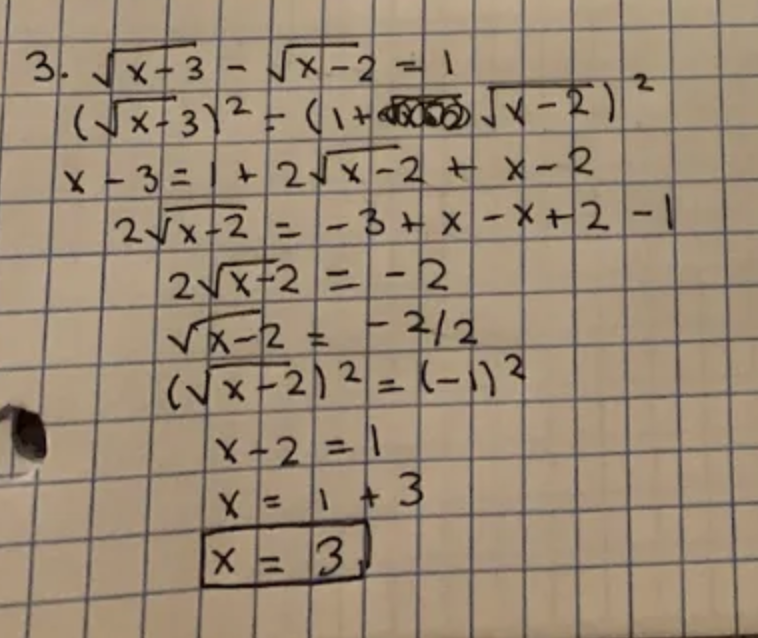 3. √(x-3) - √(x-2) = 1
(√(x-3))² = (1 + √(x-2))²
x - 3 = 1 + 2√(x-2) + x - 2
2√(x-2) = -3 + x - x + 2 - 1
2√(x-2) = -2
√(x-2) = -2/2
(√(x-2))² = (-1)²
x - 2 = 1
x = 1 + 3
x = 3